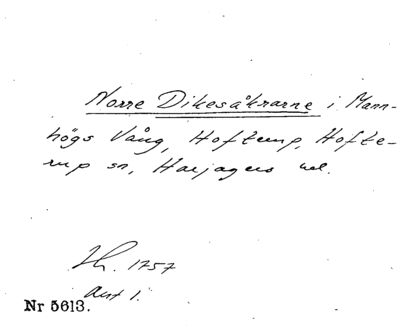 Norre Dikesåkrarne i Mann-
högs Vång, Hofterup, Hofte-
rup sn, Harjagers hd.
Sk. 1757
akt 1.
Nr 5613.